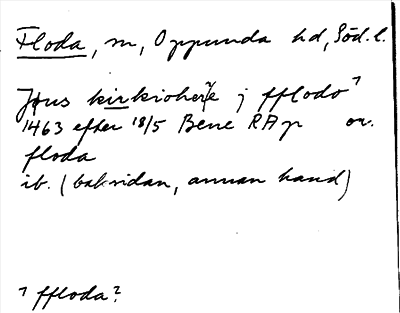 Floda, sn, Oppunda hd, Söd. l.
Jöns kirkioherre j fflodo ⁊
1463 efter 18/5 Bene RAp or.
floda
ib. (baksidan, annan hand)
⁊ ffloda?